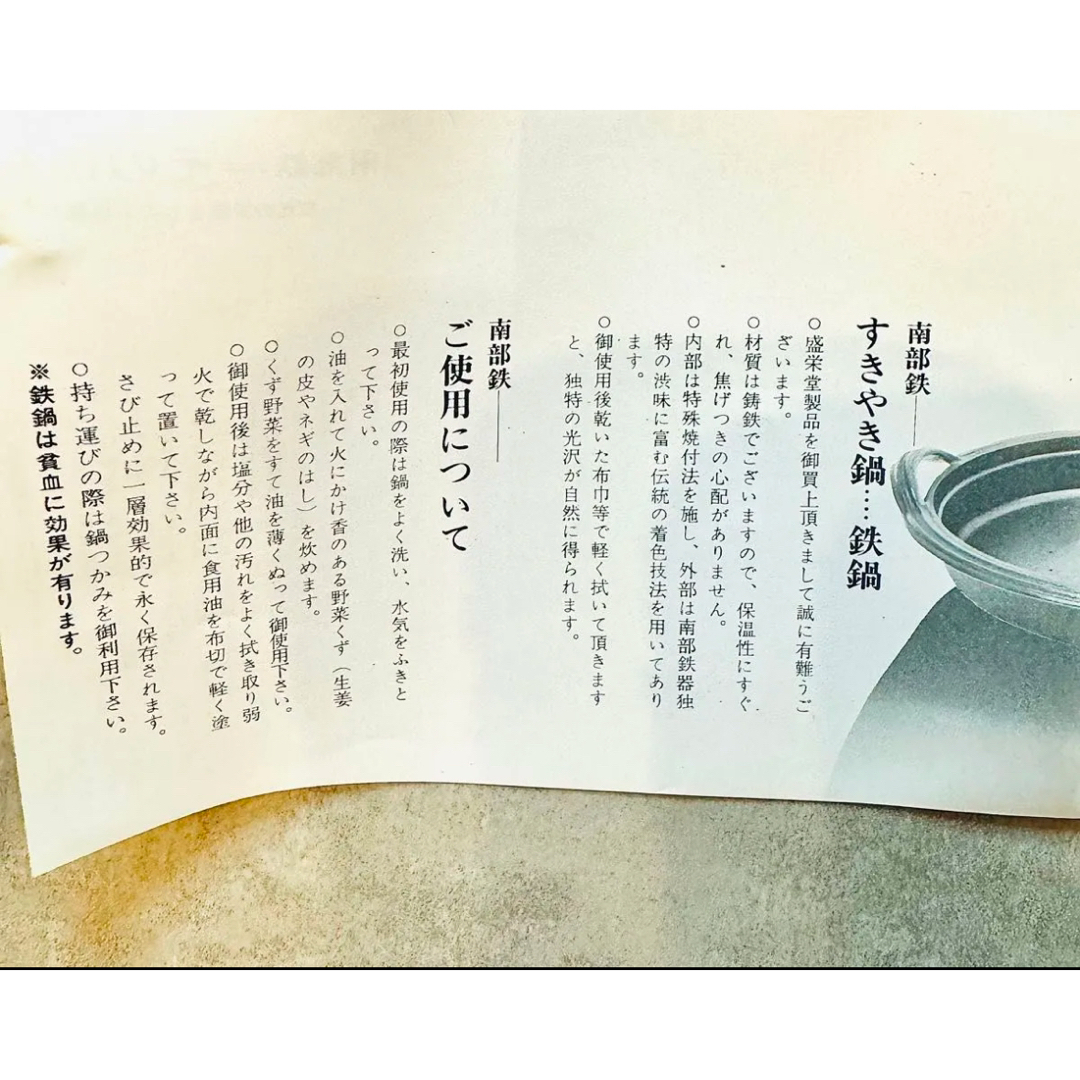 南部鉄――
すきやき鍋……鉄鍋
○盛栄堂製品を御買上頂きまして誠に有難うご
ざいます。
○材質は鋳鉄でございますので、保温性にすぐ
れ、焦げつきの心配がありません。
○内部は特殊焼付法を施し、外部は南部鉄器独
特の渋味に富む伝統の着色技法を用いてあり
ます。
○御使用後乾いた布巾等で軽く拭いて頂きます
と、独特の光沢が自然に得られます。
南部鉄――
ご使用について
○最初使用の際は鍋をよく洗い、水気をふきと
って下さい。
○油を入れて火にかけ香のある野菜くず（生姜
の皮やネギのはし）を炊めます。
○くず野菜をすて油を薄くぬって御使用下さい。
○御使用後は塩分や他の汚れをよく拭き取り弱
火で乾しながら内面に食用油を布切で軽く塗
って置いて下さい。
さび止めに一層効果的で永く保存されます。
○持ち運びの際は鍋つかみを御利用下さい。
※鉄鍋は貧血に効果が有ります。